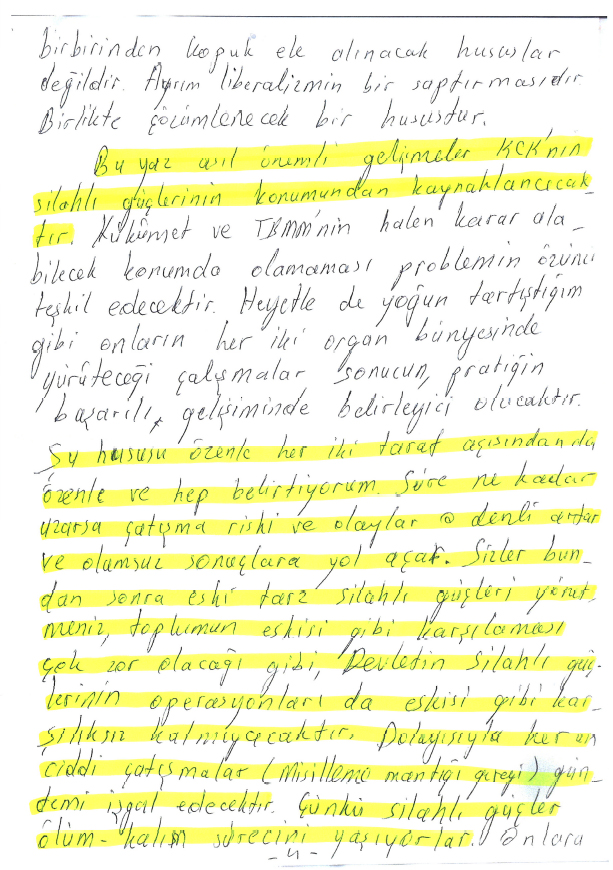 birbirinden kopuk ele alınacak hususlar
değildir. Ayrım liberalizmin bir saptırmasıdır.
Birlikte çözümlenecek bir husustur.
Bu yaz asıl önemli gelişmeler KCK'nin
silahlı güçlerinin konumundan kaynaklanacak-
tır. Hükümet ve TBMM'nin halen karar ala-
bilecek konumda olamaması problemin özünü
teşkil edecektir. Heyetle de yoğun tartıştığım
gibi onların her iki organ bünyesinde
yürüteceği çalışmalar sonucun, pratiğin
başarılı, gelişiminde belirleyici olacaktır.
Şu hususu özenle her iki taraf açısından da
özenle ve hep belirtiyorum. Süre ne kadar
uzarsa çatışma riski ve olaylar o denli artar
ve olumsuz sonuçlara yol açar. Sizler bun-
dan sonra eski tarz silahlı güçleri yürüt-
meniz, toplumun eskisi gibi karşılaması
çok zor olacağı gibi, Devletin silahlı güç-
lerinin operasyonları da eskisi gibi kar-
şılıksız kalmayacaktır. Dolayısıyla her an
ciddi çatışmalar (Misilleme mantığı gereği) gün-
demi işgal edecektir. Çünkü silahlı güçler
ölüm-kalım sürecini yaşıyorlar. Onlara
-4-